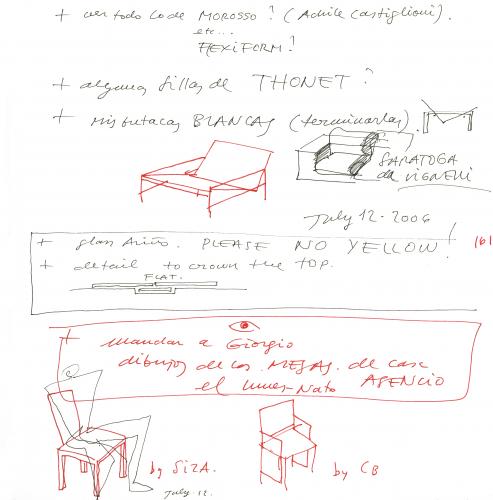 + ver todo lo de MOROSSO? (Achile Castiglioni).
etc...
FLEXIFORM!
+ algunas sillas de THONET?
+ Mis butacas BLANCAS (terminarlas).
SARATOGA
de VIGNELLI
July 12. 2006
161
+ glass Ariño. PLEASE NO YELLOW!
+ detail to crown the top.
FLAT.
+ mandar a Giorgio
dibujos de las MESAS de casa
el lunes - Nato ASENCIO
by SIZA.
by CB
July. 12.